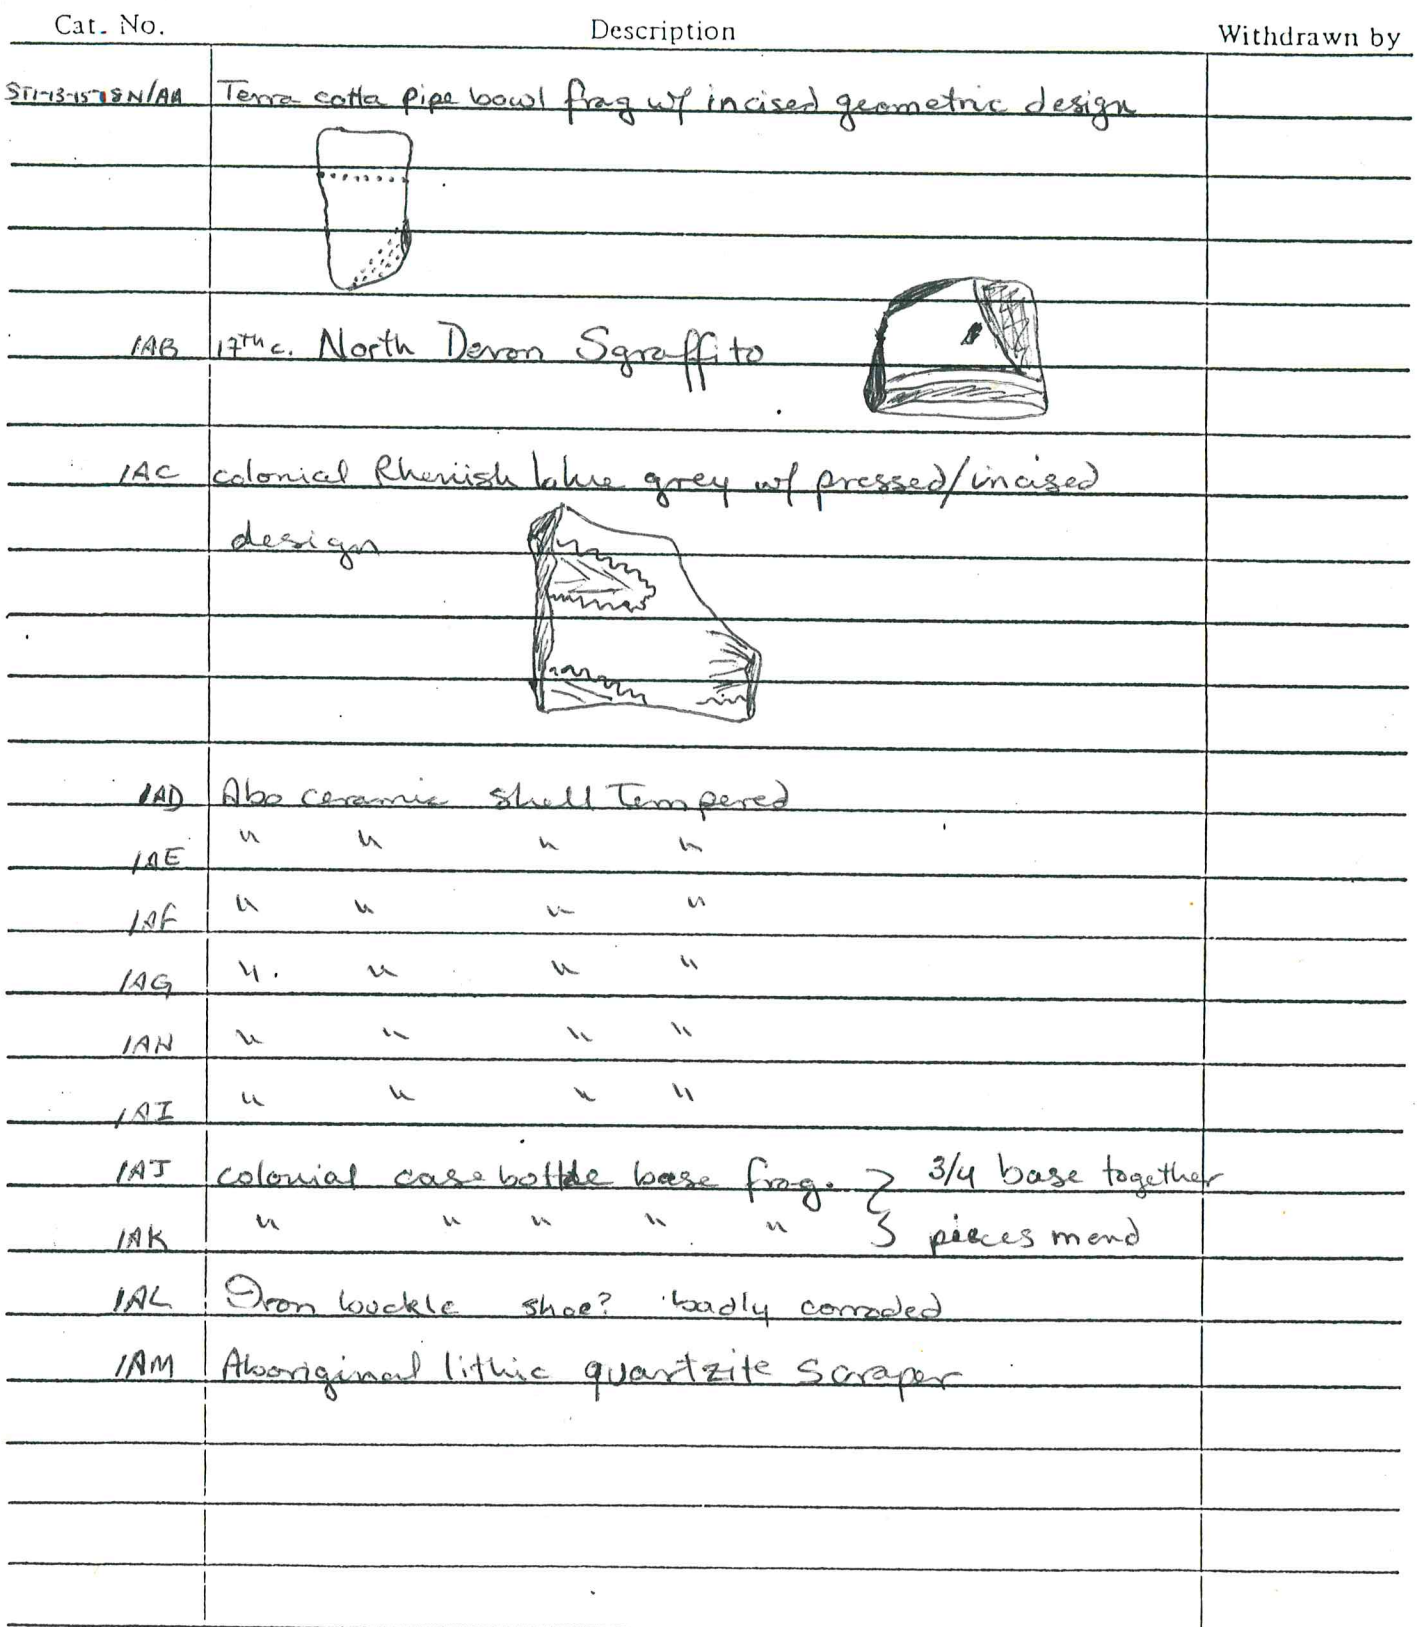 Cat. No. Description Withdrawn by
ST1-13-15-18N/AA Terra cotta pipe bowl frag w/ incised geometric design
/AB 17th c. North Devon Sgraffito
/AC colonial Rhenish blue grey w/ pressed/incised
design
/AD Abo ceramic shell Tempered
/AE " " " "
/AF " " " "
/AG " " " "
/AH " " " "
/AI " " " "
/AJ colonial case bottle base frag. } 3/4 base together
/AK " " " " " } pieces mend
/AL Iron buckle shoe? badly corroded
/AM Aboriginal lithic quartzite scraper